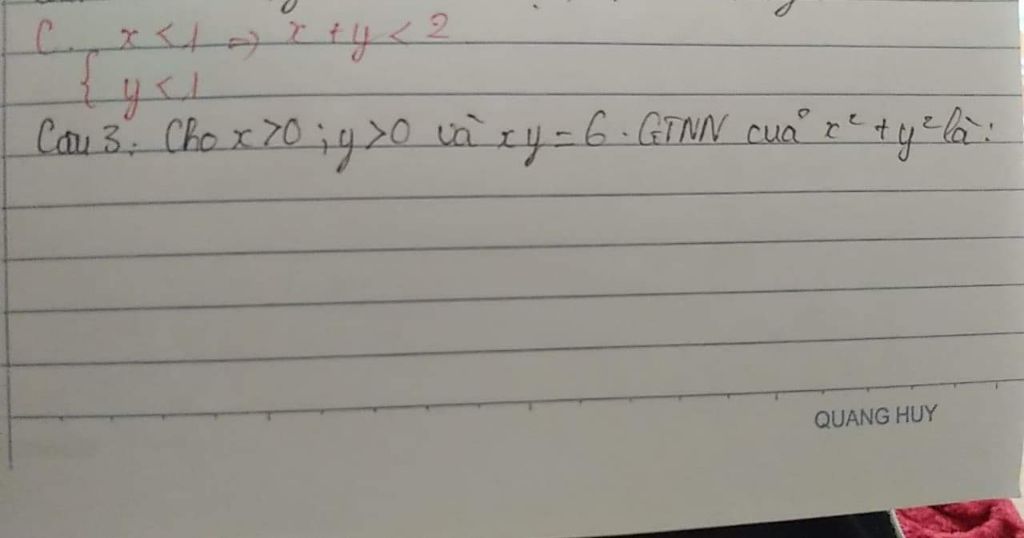 C. x < 1 => x + y < 2
{ y < 1
Câu 3: Cho x > 0 ; y > 0 và xy = 6 . GTNN của x² + y² là :
QUANG HUY